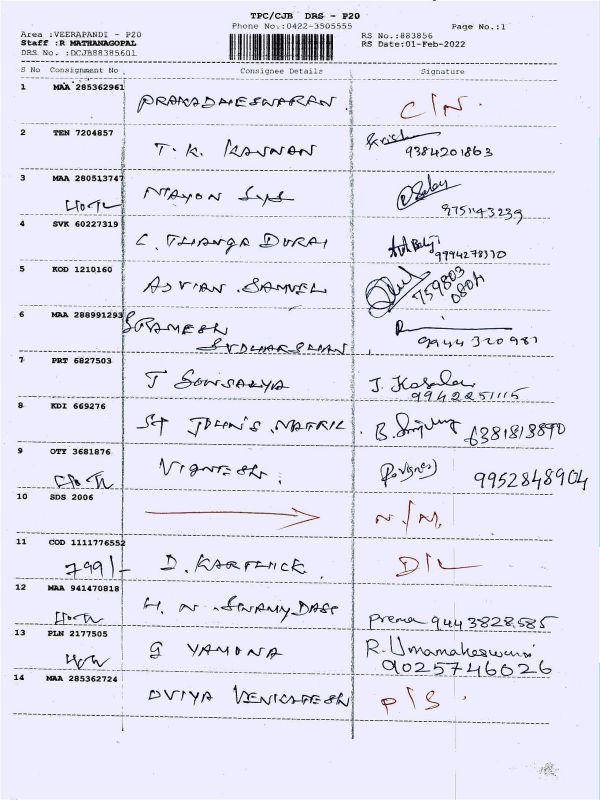 TPC/CJB DRS - P20
Phone No.:0422-3505555
Page No.:1
Area :VEERAPANDI - P20
Staff :R MATHANAGOPAL
DRS No. :DCJB88385601
RS No.:883856
RS Date:01-Feb-2022
S No Consignment No Consignee Details Signature
1 MAA 285362961 PRANADHESWARAN C/N.
2 TEN 7204857 T. K. KANNAN 9384201863
3 MAA 280513747 MAYON SYS 9751143239
4 SVK 60227319 C. THANGA DURAI 9994278330
5 KOD 1210160 ASVIAN SAMUEL 759803 0804
6 MAA 288991293 RAMESH SUDHARSHAN 9944320981
7 PRT 6827503 T SOWSALYA J. Kosalai 9942251115
8 KDI 669276 ST JOHN'S MATRIC B. 6381813890
9 OTY 3681876 VIGNESH. 9952848904
10 SDS 2006 N/M.
11 COD 1111776552 799/- D. KARTHICK D/L
12 MAA 941470818 H. N. SWAMY DASS Prema 9443828585
13 PLN 2177505 G YAMONA R. Umamaheswari 9025746026
14 MAA 285362724 OVIYA VENKATESH P/S